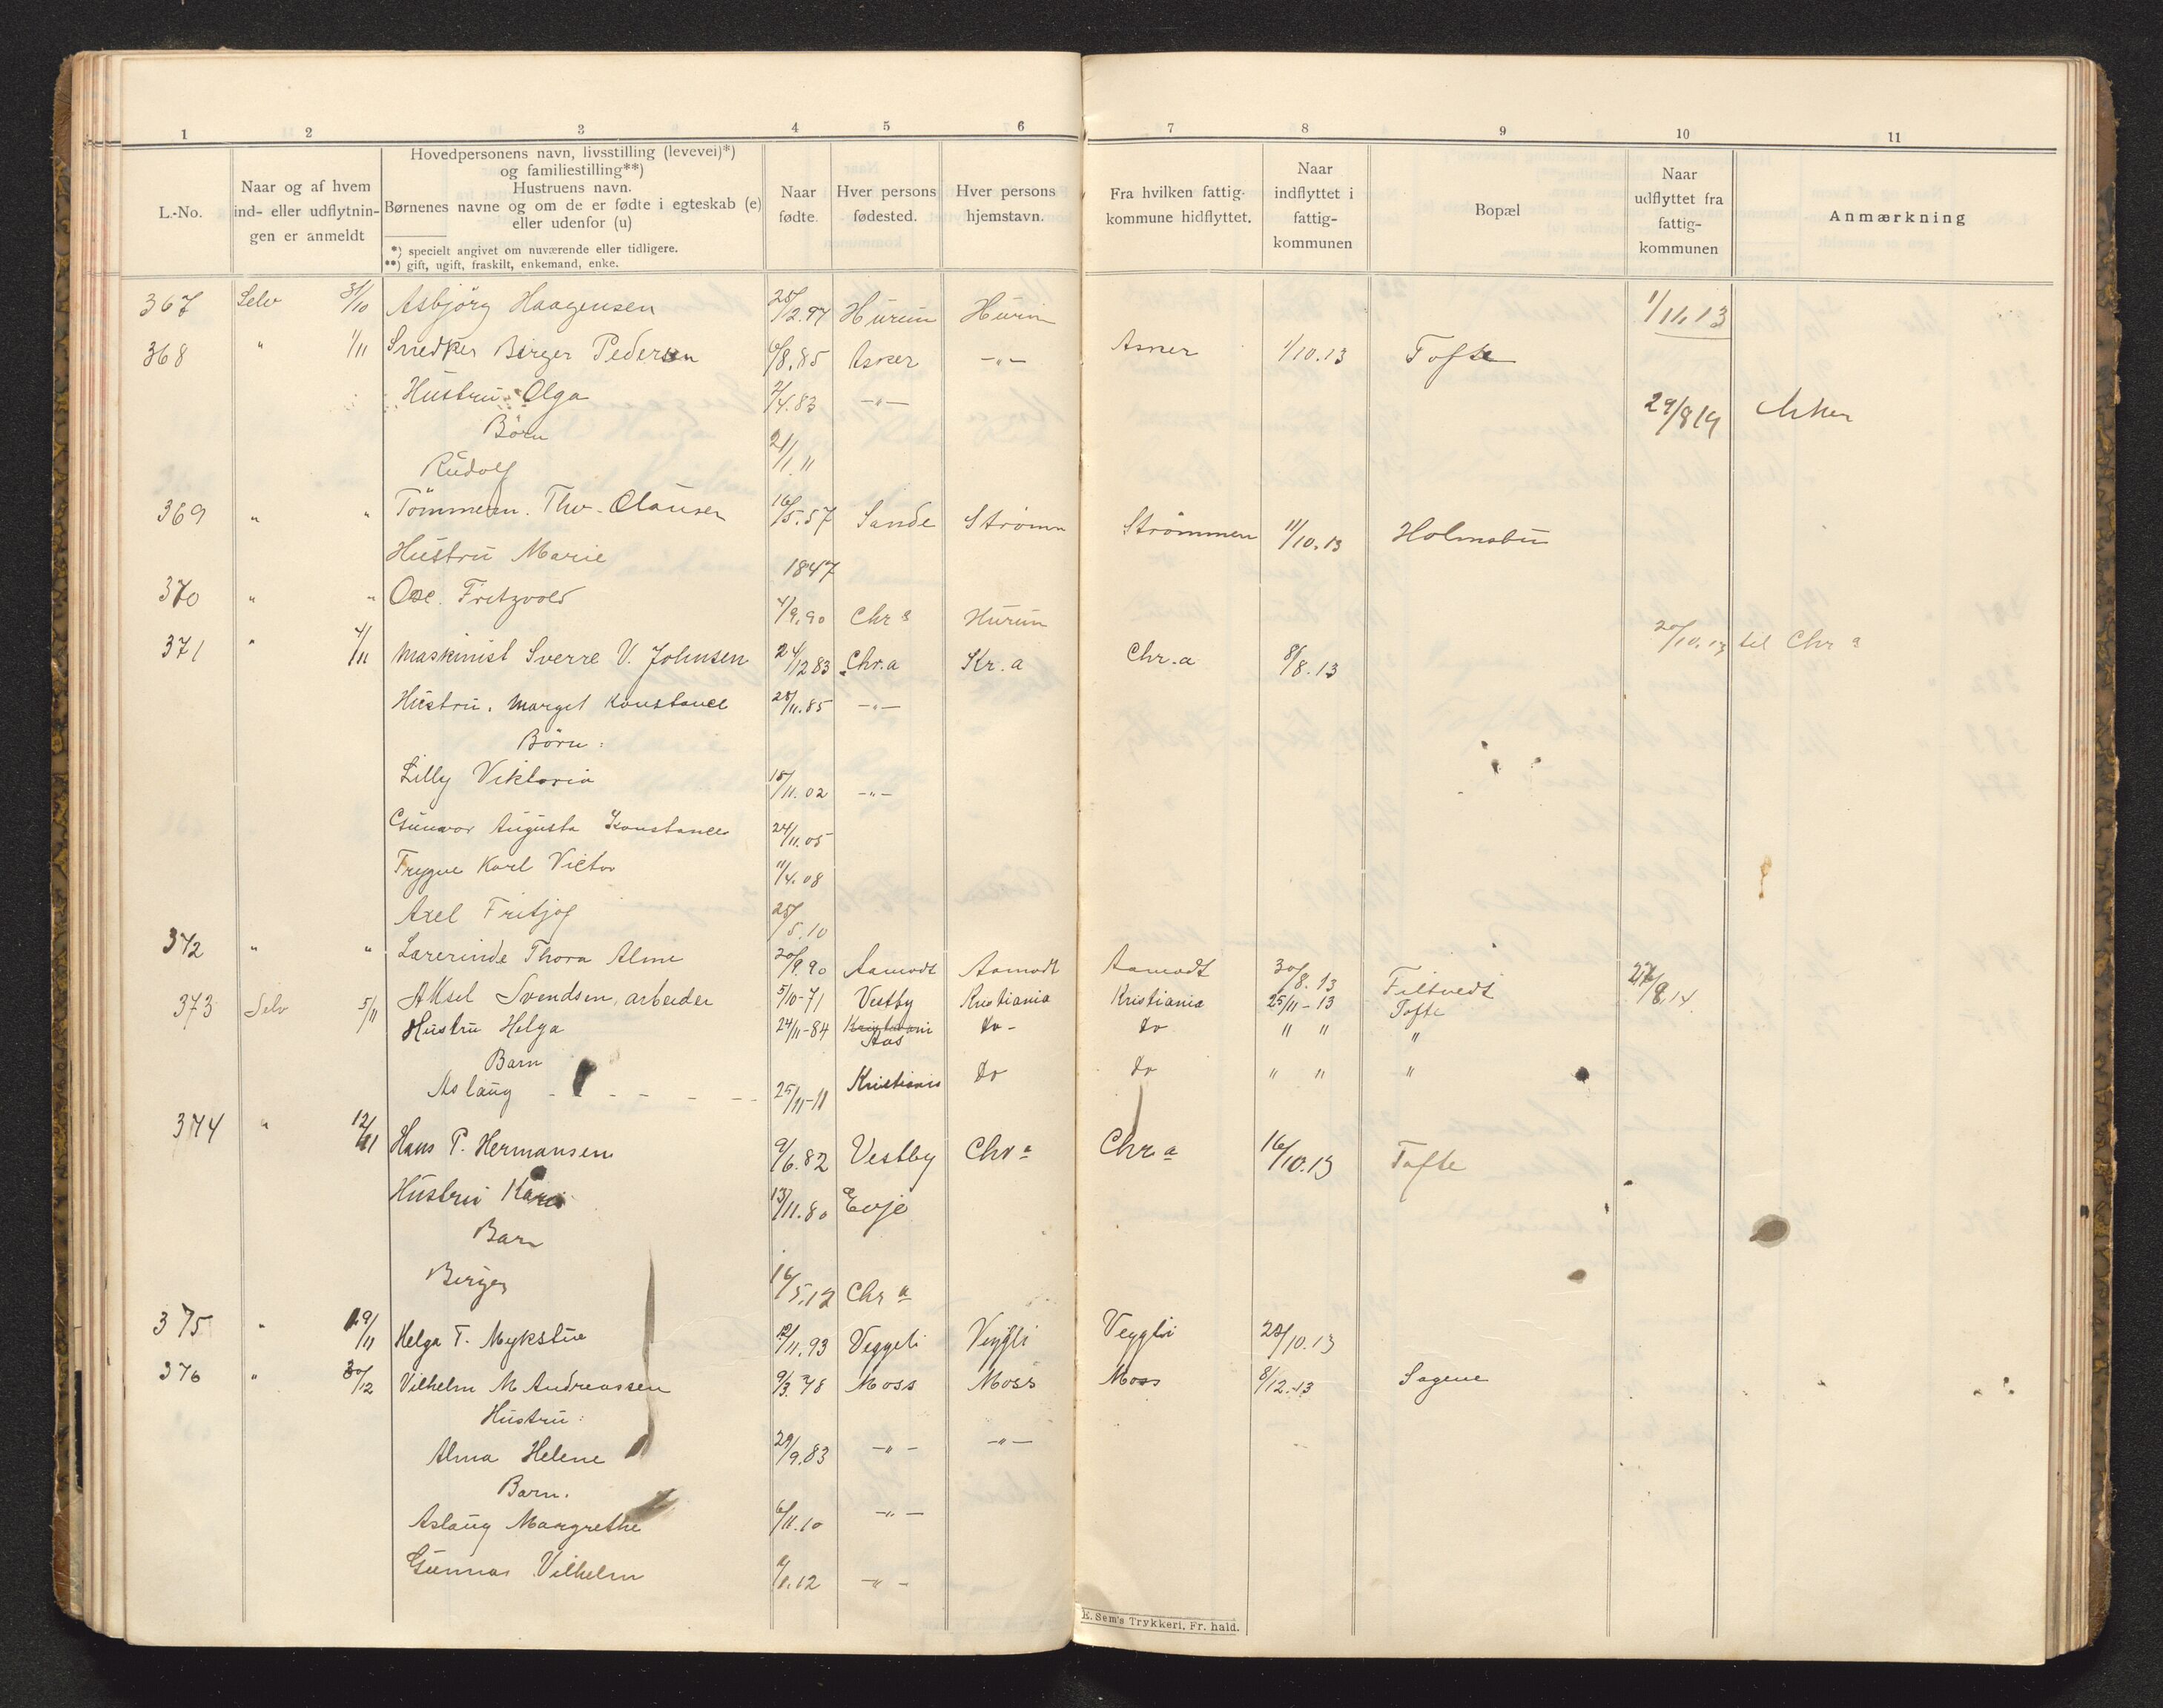 1 2 3 4 5 6 7 8 9 10 11
L.-No.
Naar og af hvem
ind- eller udflytnin-
gen er anmeldt
Hovedpersonens navn, livsstilling (levevei)*)
og familiestilling**)
Hustruens navn.
Børnenes navne og om de er fødte i egteskab (e)
eller udenfor (u)
*) specielt angivet om nuværende eller tidligere.
**) gift, ugift, fraskilt, enkemand, enke.
Naar
fødte.
Hver persons
fødested.
Hver persons
hjemstavn.
Fra hvilken fattig-
kommune hidflyttet.
Naar
indflyttet i
fattig-
kommunen
Bopæl
Naar
udflyttet fra
fattig-
kommunen
Anmærkning
367 Selv 31/10 Asbjörg Haagensen 25/12.97 Hurum Hurum 1/11.13
368 " 1/11 Snedker Birger Pedersen 6/8.85 Asker -"- Asker 1/10.13 Tofte
Hustru Olga 2/4.83 -"- 29/8 14 Asker
Börn
Rudolf 21/1 11
369 " " Tömmerm. Thv. Clausen 16/5.57 Sande Strömm Strömmen 11/10.13 Holmsbu
Hustru Marie 1847
370 " " Osc. Fritzvold 4/9.90 Chr a Hurum 20/10.13 til Chr a
371 " 4/11 Maskinist Sverre V. Johnsen 24/12 83 Chr.a Kr.a Chr.a 8/8.13
Hustru. Marget Konstance 28/11.85 -"-
Börn:
Lilly Viktoria 15/11.02 -"-
Gunvor Augusta Konstance 24/11.05
Trygve Karl Victor 11/4.08
Axel Fritjof 25/5.10
372 " " Lærerinde Thora Alme 20/9.90 Aamodt Aamodt Aamodt 30/8.13 Filtvedt 27/8.14
373 Selv 5/11 Aksel Svendsen, arbeider 5/10-71 Vestby Kristiania Kristiania 25/11-13 Tofte
Hustru Helga 24/11-84 Kristiani Aas do- do " " "
Barn
Aslaug - - - - - 25/11-11 Kristiania do do " " "
374 " 12/11 Hans P. Hermansen 9/6.82 Vestby Chr a Chr.a 16/10.13 Tofte
Hustru Karen 13/11.80 Evje
Barn
Birger 16/5.12 Chr a
375 " 19/11 Helga T. Mykstue 12/11.93 Veggeli Veggli Veggli 28/10.13
376 " 30/12 Vilhelm M Andreassen 9/3.78 Moss Moss Moss 8/12.13 Sagene
Hustru:
Alma Helene 29/9.83 -"- -"-
Barn.
Aslaug Margrethe 6/11.10 -"-
Gunnar Vilhelm /1.12 -"-
E. Sem's Trykkeri, Fr. hald.